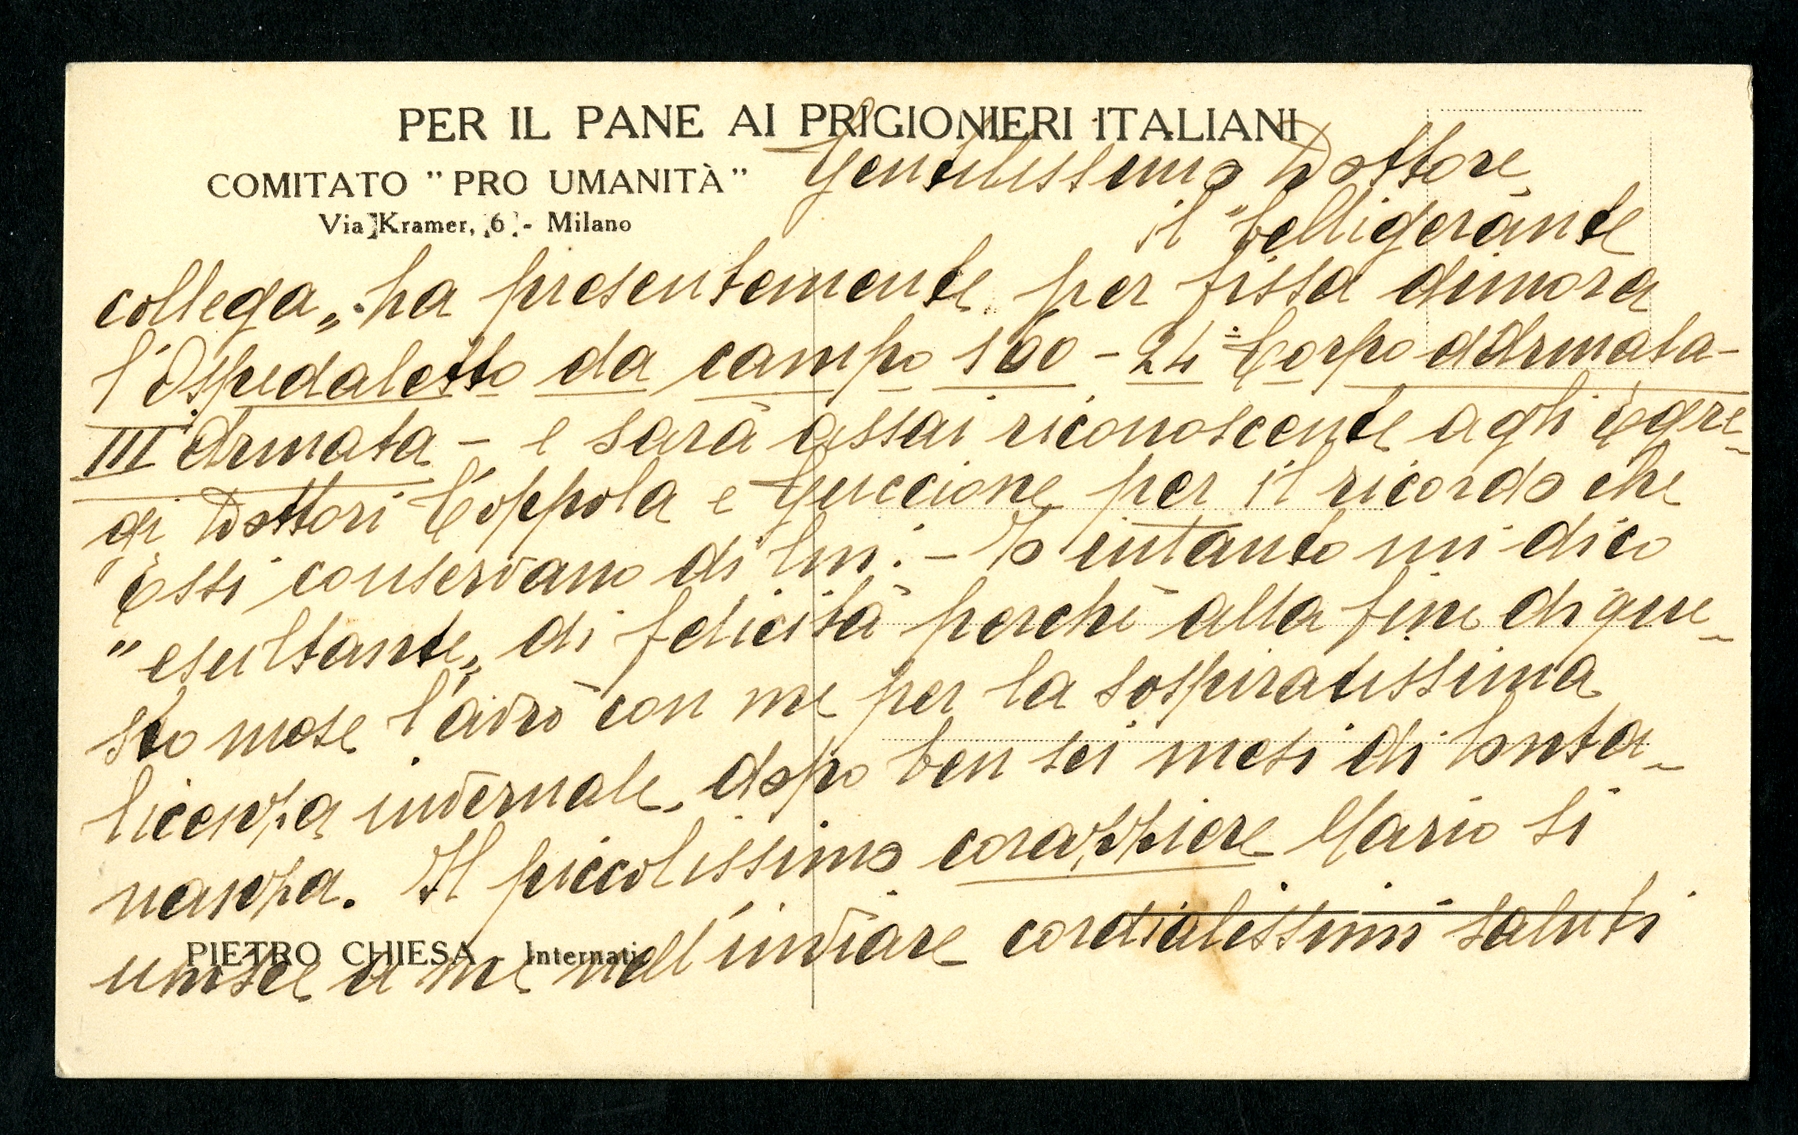 PER IL PANE AI PRIGIONIERI ITALIANI
COMITATO "PRO UMANITÀ"
Via Kramer, 6 - Milano
Gentilissimo Dottore,
il "belligerante
collega„ ha presentemente per fissa dimora
l'Ospedaletto da campo 160 - 24º Corpo d'Armata -
III Armata - e sarà assai riconoscente agli Egre-
gi Dottori Coppola e Guccione per il ricordo che
Essi conservano di lui. - Io intanto mi dico
"esultante„ di felicità perchè alla fine di que-
sto mese l'avrò con me per la sospiratissima
licenza invernale, dopo ben sei mesi di lonta-
nanza. Il piccolissimo corazziere Mario si
unisce a me nell'inviare cordialissimi saluti
PIETRO CHIESA - Internati